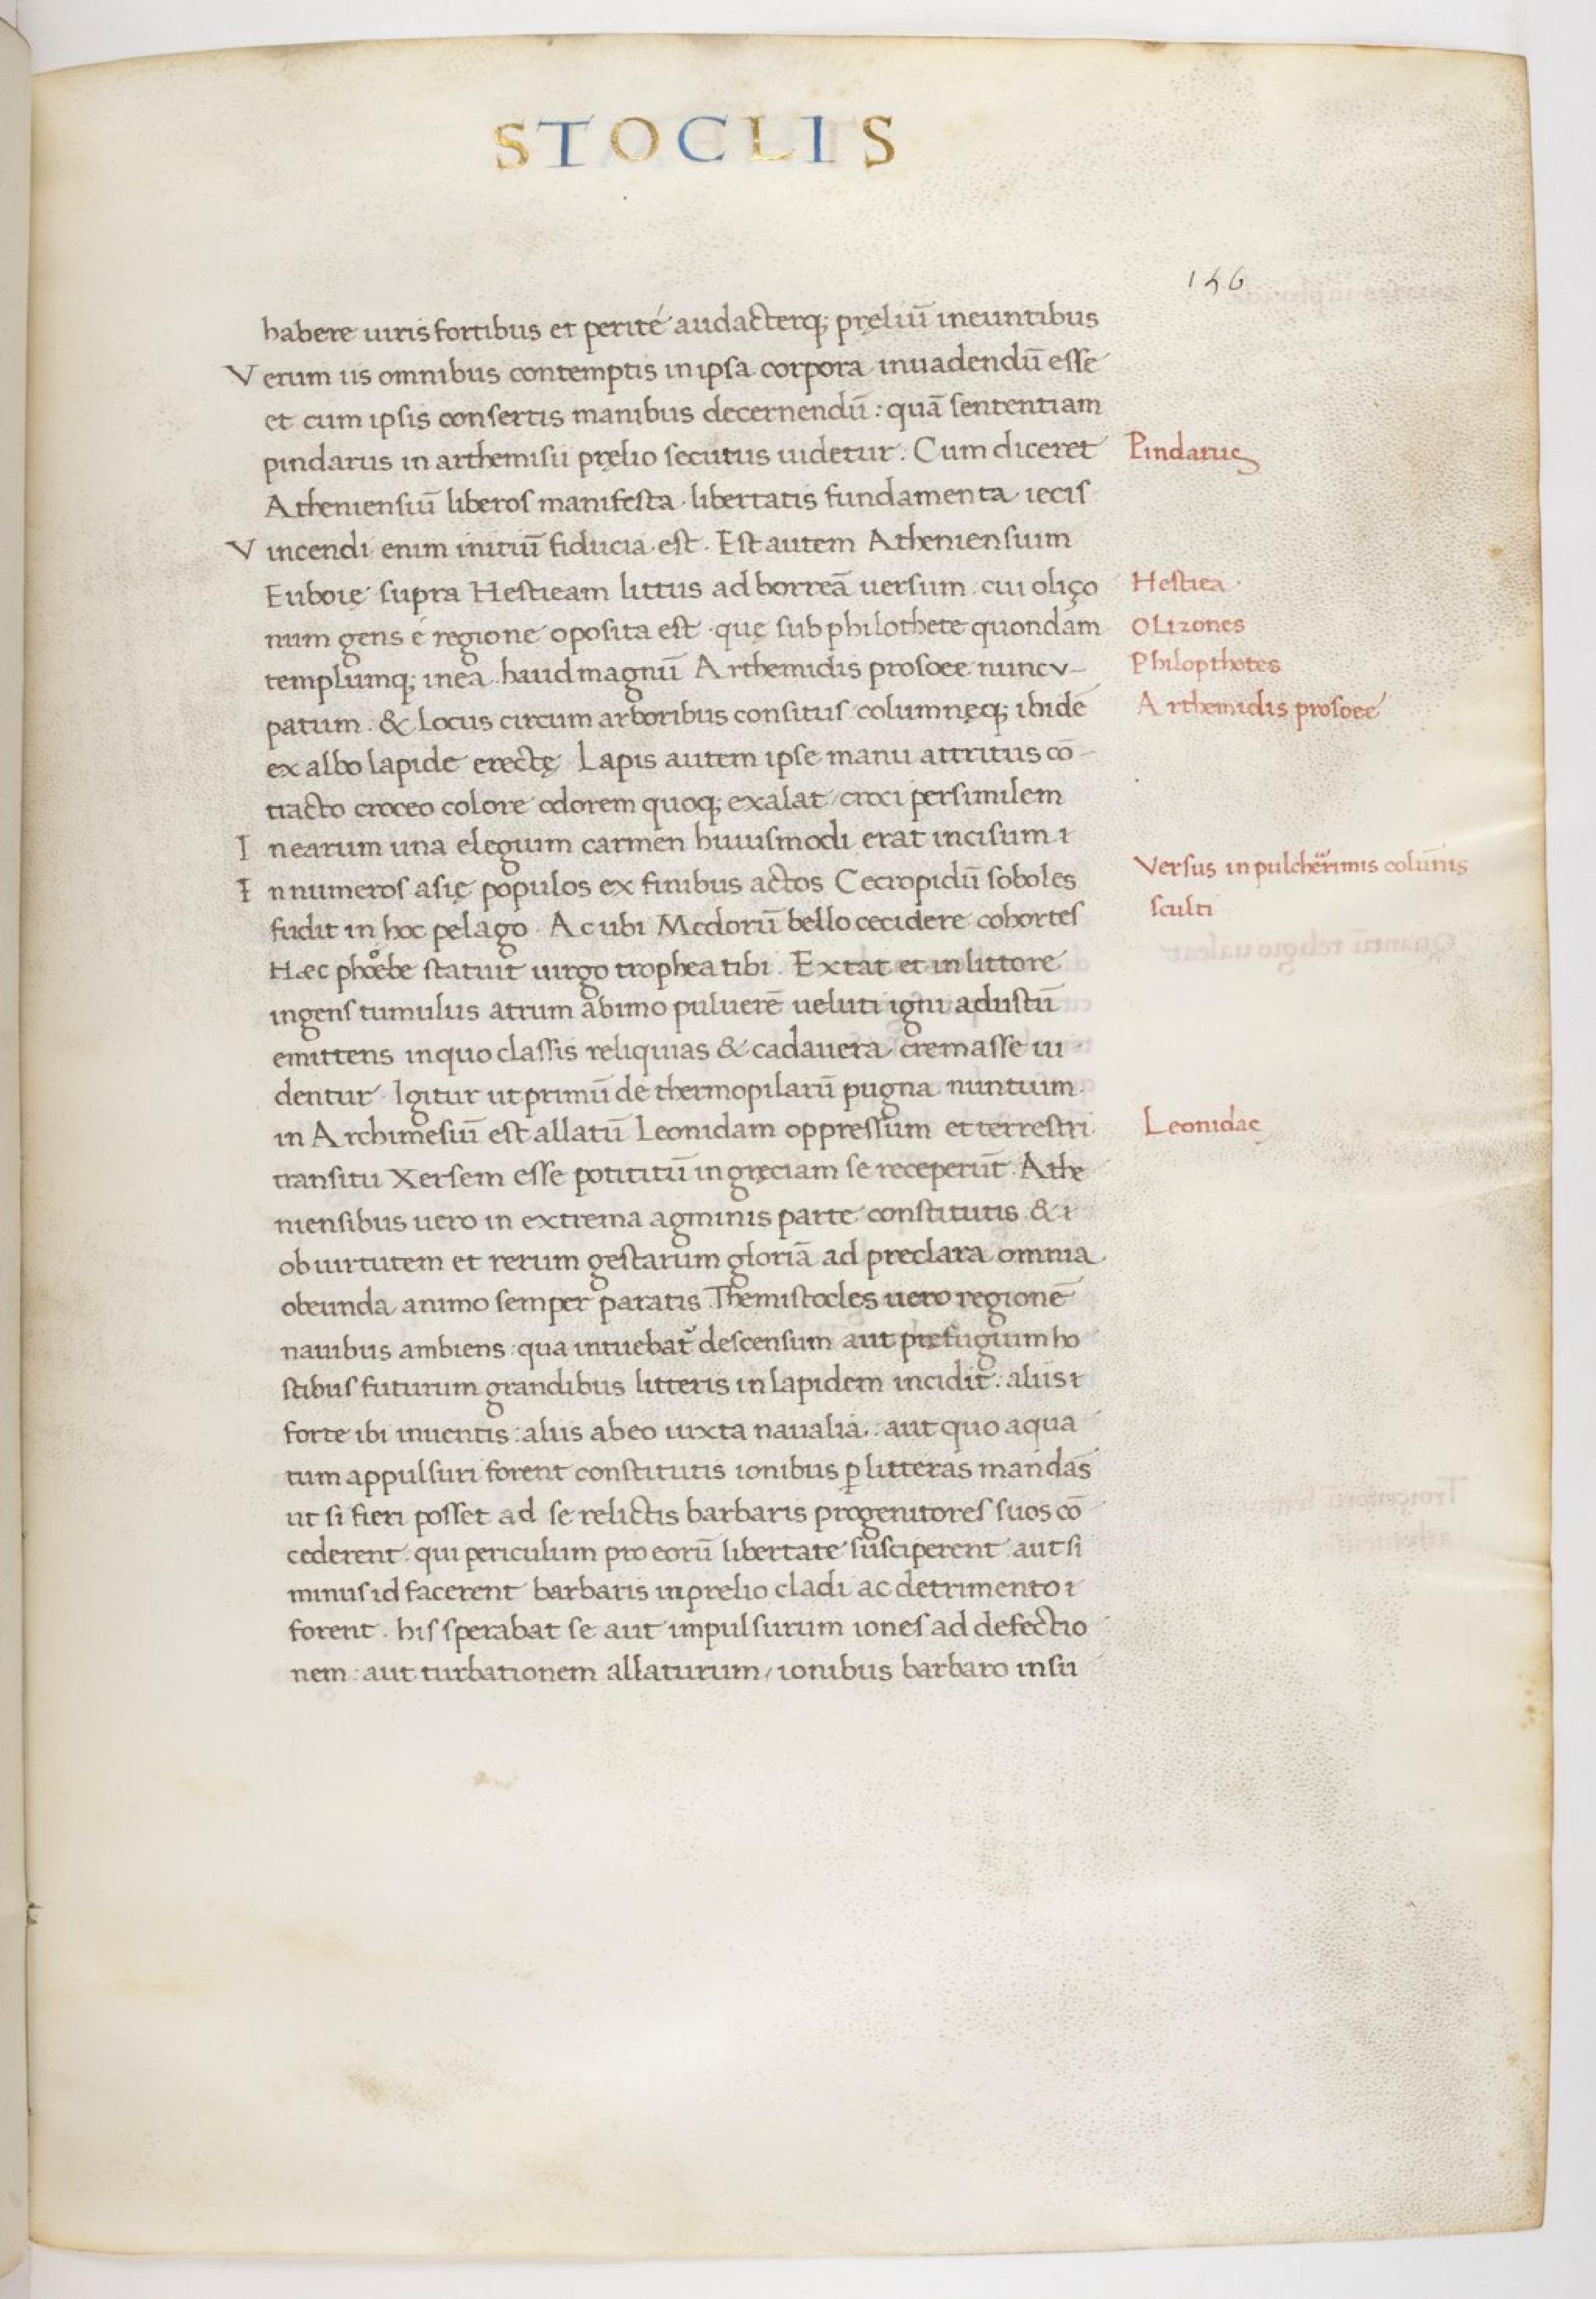 STOCLIS
156
habere uiris fortibus et perité audacterq; pręliū ineuntibus
Verum iis omnibus contemptis in ipsa corpora inuadendū esse
et cum ipsis consertis manibus decernendū: quā sententiam
pindarus in arthemisii pręlio secutus uidetur. Cum diceret
Pindarus
Atheniensiū liberos manifesta libertatis fundamenta iecis
Vincendi enim initiū fiducia est. Est autem Atheniensium
Euboię supra Hestieam littus ad borreā uersum cui oliço
Hestiea
num gens é regione oposita est quę sub philothete quondam
Olizones
templumq; in ea haud magnū Arthemidis prosoee nuncu-
Philopthotes
patum. & Locus circum arboribus consitus columnęq; ibidē
Arthemidis prosoee
ex albo lapide erectę Lapis autem ipse manu attritus cō-
tracto croceo colore odorem quoq; exalat croci persimilem
I nearum una elegium carmen huiusmodi erat incisum
I nnumeros asię populos ex finibus actos Cecropidū soboles
Versus in pulcherrimis colūnis
sculti
fudit in hoc pelago. Ac ubi Medorū bello cecidere cohortes
Hæc phoebe statuit uirgo trophea tibi. Extat et in littore
ingens tumulus atrum ab imo puluerē ueluti igni adustū
emittens in quo classis reliquias & cadauera cremasse ui
dentur. Igitur ut primū de thermopilarū pugna nuntium
in Archimesiū est allatū Leonidam oppressum et terrestri
Leonidae
transitu Xersem esse potititū in gręciam se receperūt. Athe
niensibus uero in extrema agminis parte constitutis &
ob uirtutem et rerum gestarum gloriā ad preclara omnia
obeunda animo semper paratis Themistocles uero regionē
nauibus ambiens: qua intuebat̄ descensum aut pręfugium ho
stibus futurum grandibus litteris in lapidem incidit: aliis
forte ibi inuentis: aliis ab eo iuxta naualia: aut quo aqua
tum appulsuri forent constitutis ionibus ꝑ litteras mandās
ut si fieri posset ad se relictis barbaris progenitores suos cō
cederent: qui periculum pro eorū libertate susciperent aut si
minus id facerent barbaris in prelio cladi ac detrimento
forent. his sperabat se aut impulsurum iones ad defectio
nem: aut turbationem allaturum, ionibus barbaro in su